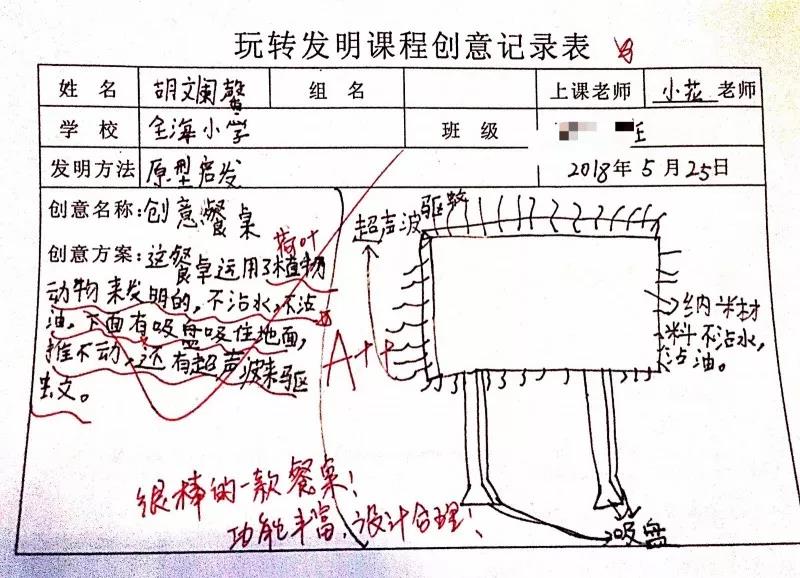 玩转发明课程创意记录表
姓 名 胡文阑馨 组 名 上课老师 小菘 老师
学 校 全海小学 班 级
发明方法 原型启发 2018年5月25日
创意名称:创意餐桌
创意方案:这餐桌运用了植物
荷叶
动物来发明的,不沾水,不沾
油,下面有吸盘吸住地面,
推不动,还有超声波来驱
去文。
超声波驱蚊
纳米材
料不沾水,
沾油。
吸盘
A++
很棒的一款餐桌!
功能丰富,设计合理!